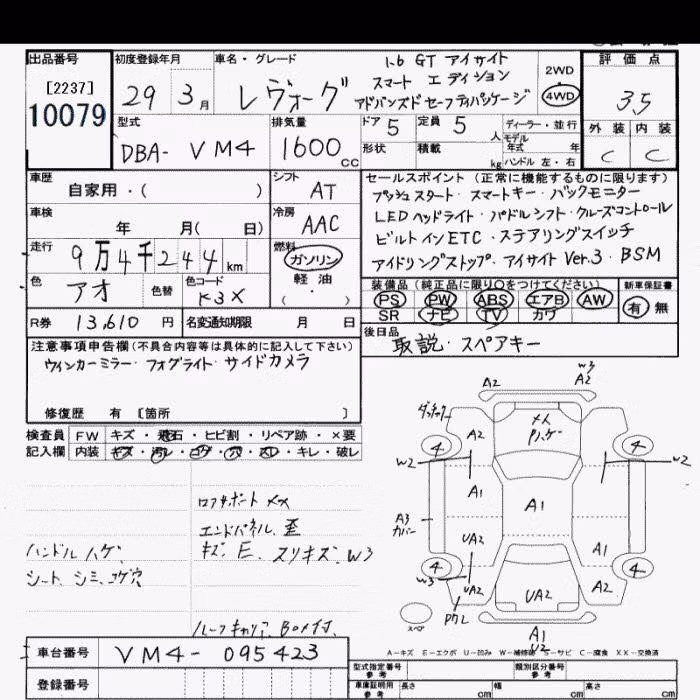 出品番号
[2237]
10079
初度登録年月
29 3月
車名・グレード
レヴォーグ
1.6 GT アイサイト
スマート エディション
アドバンスドセーフティパッケージ
2WD
4WD
評価点
3.5
外装 内装
C C
型式
DBA- VM4
排気量
1600cc
ドア 5
定員 5人
形状
積載 kg
ディーラー・並行
モデル年式 年
ハンドル 左・右
車歴
自家用・( )
シフト
AT
車検
年 月( 日)
冷房
AAC
走行
9万4千244km
燃料
ガソリン
軽油
( )
色
アオ
色替
色コード
K3X
R券
13,610円
名変通知期限 月 日
セールスポイント (正常に機能するものに限ります)
プッシュスタート・スマートキー・バックモニター
LEDヘッドライト・パドルシフト・クルーズコントロール
ビルトインETC・ステアリングスイッチ
アイドリングストップ・アイサイト Ver.3・BSM
装備品 (純正品に限り○をつけてください)
新車保証書
PS PW ABS エアB AW
SR ナビ TV カワ
有 無
後日品
取説・スペアキー
注意事項申告欄 (不具合内容等は具体的に記入して下さい)
ウィンカーミラー・フォグライト・サイドカメラ
修復歴 有 [箇所 ]
検査員記入欄
FW キズ・飛石・ヒビ割・リペア跡・×要
内装 キズ・汚レ・コゲ・穴・スレ・キレ・破レ
ハンドル ハゲ、
シート、シミ、コゲ穴
コアサポート XX
エンドパネル、歪
キズ、E、スリキズ、W3
ルーフキャリア、BOX付、
A2
W3
A2
A2
W2
A1
A3
カバー
UA2
W3
UA2
A1
W2
A1
A2
UA2
A1
U2
4
4
4
4
スペア
A-キズ E-エクボ U-凹み W-補修跡 S-サビ C-腐食 XX-交換済
車台番号
VM4-095423
登録番号
型式指定番号
参考
類別区分番号
参考
車庫証明用
参考
長さ cm
幅 cm
高さ cm